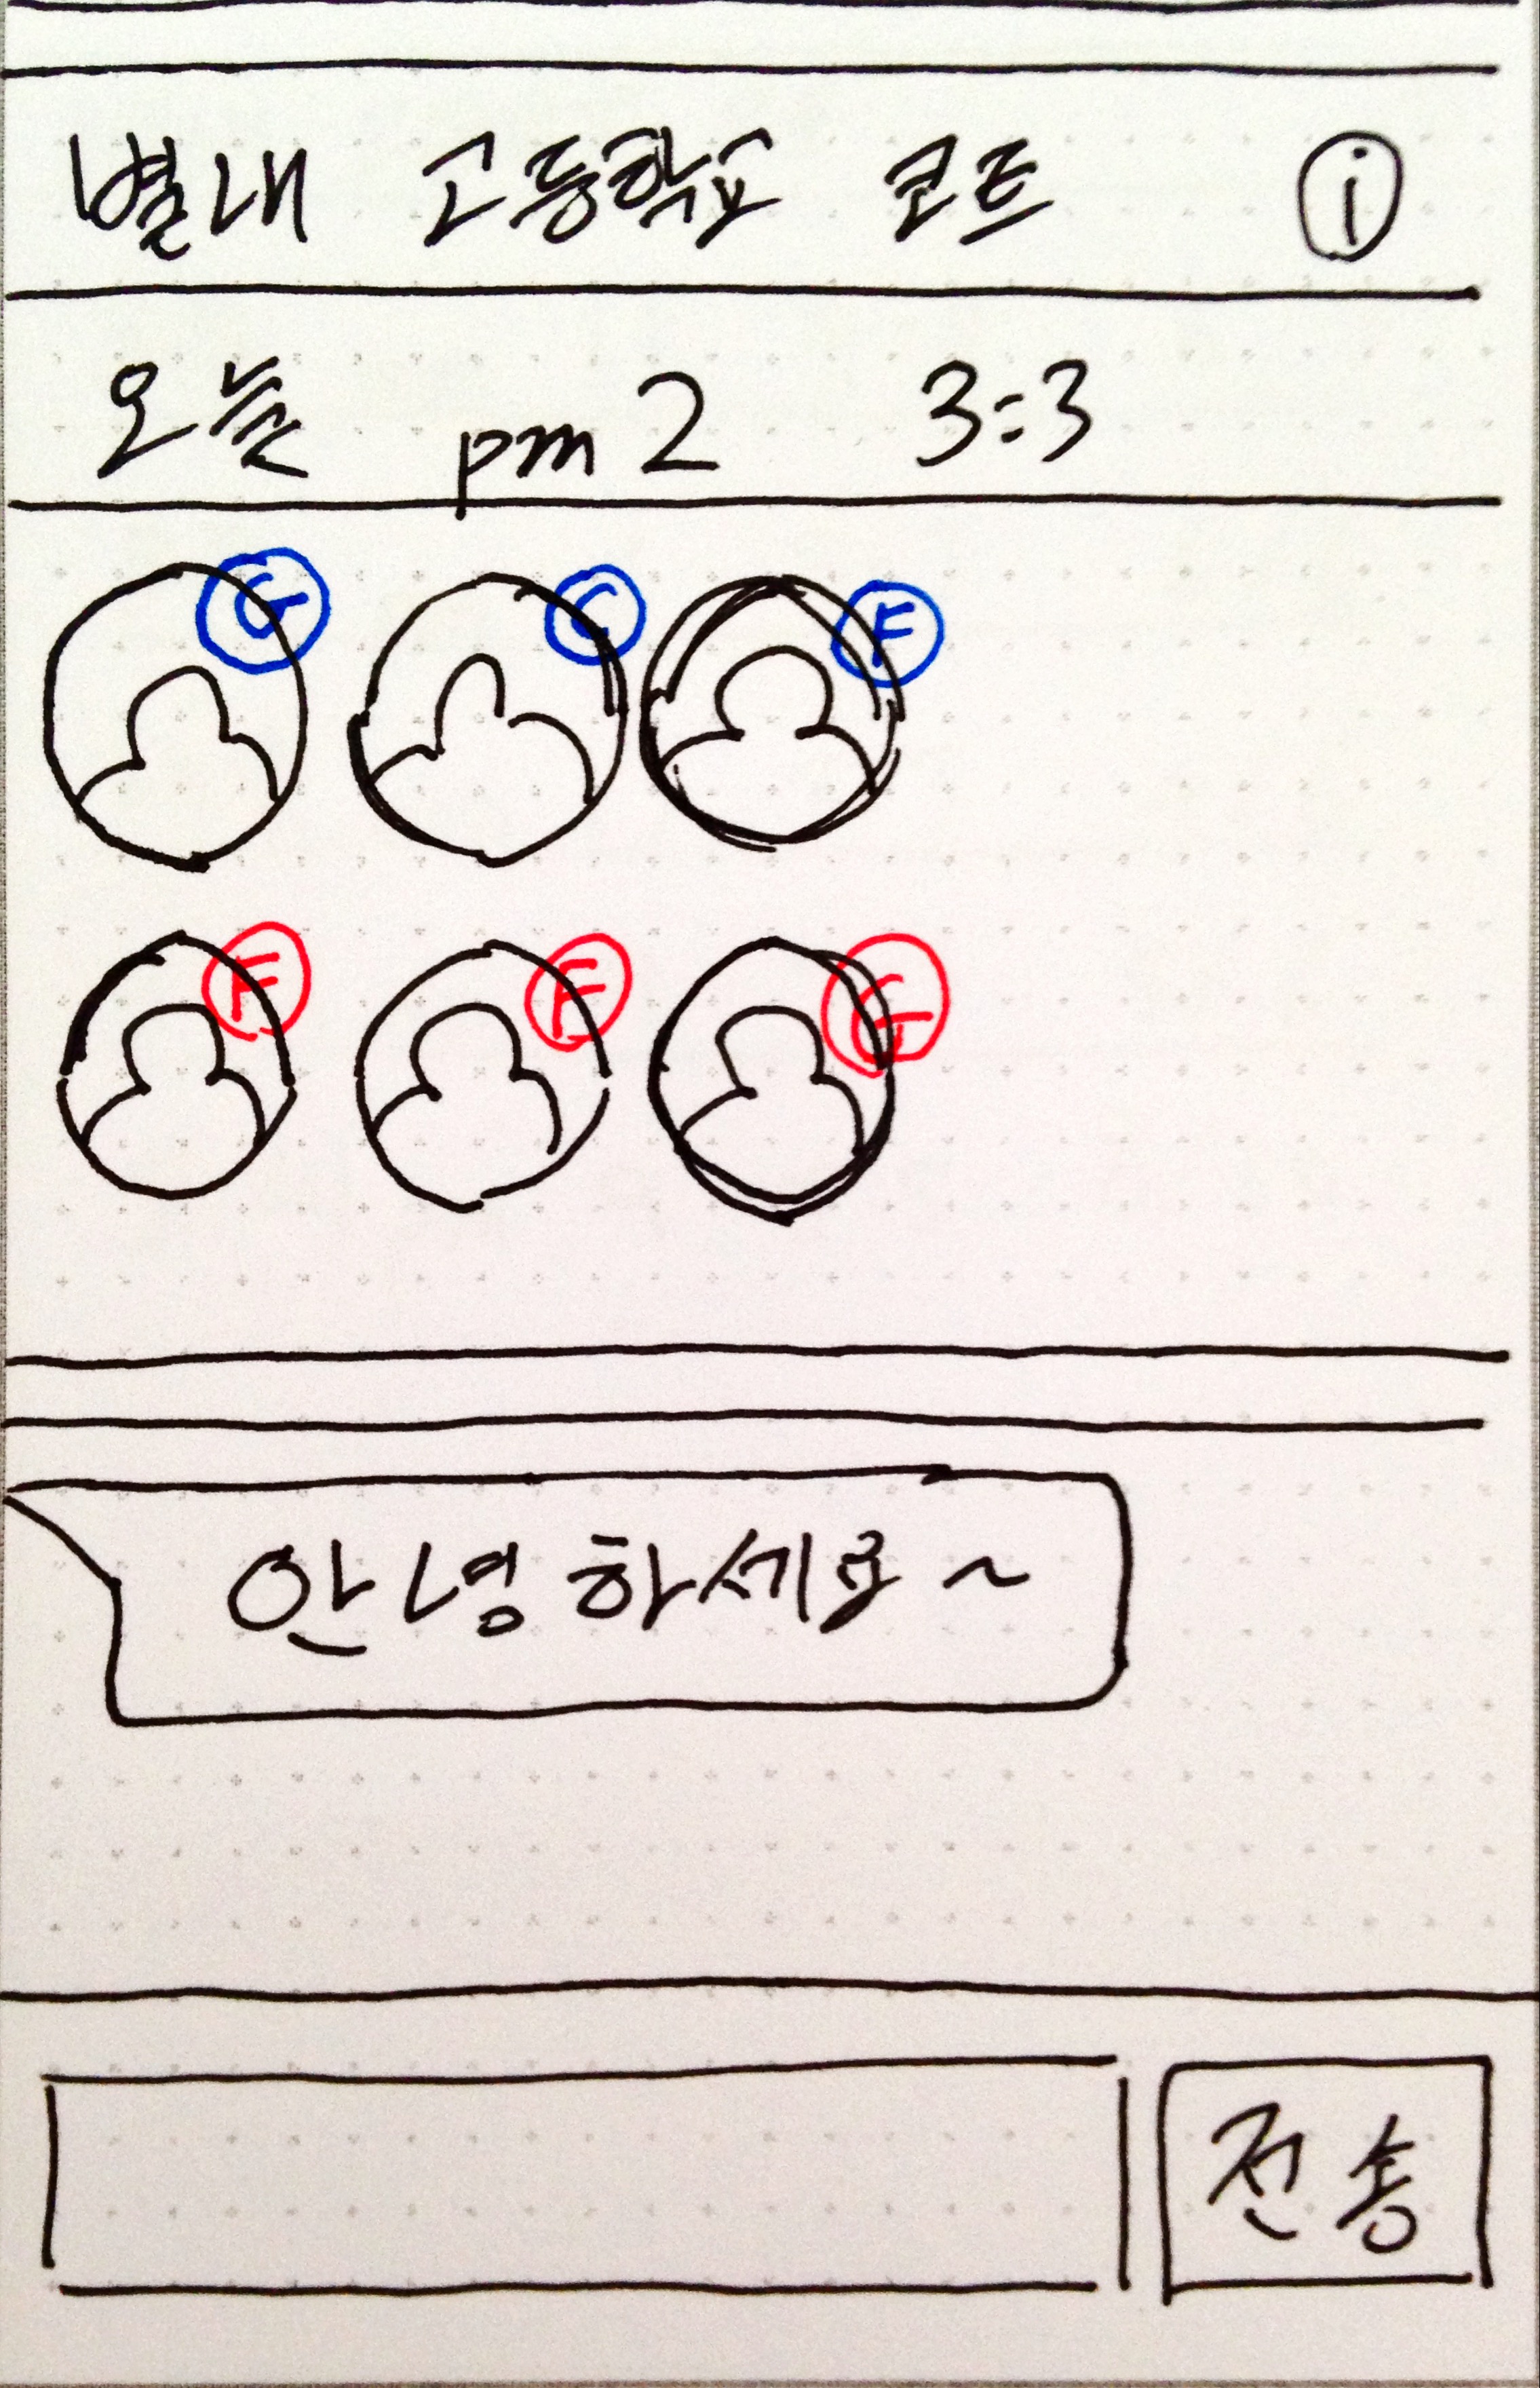 별내 고등학교 코트 i
오늘 pm 2 3:3
G C F
F F G
안녕하세요~
전송